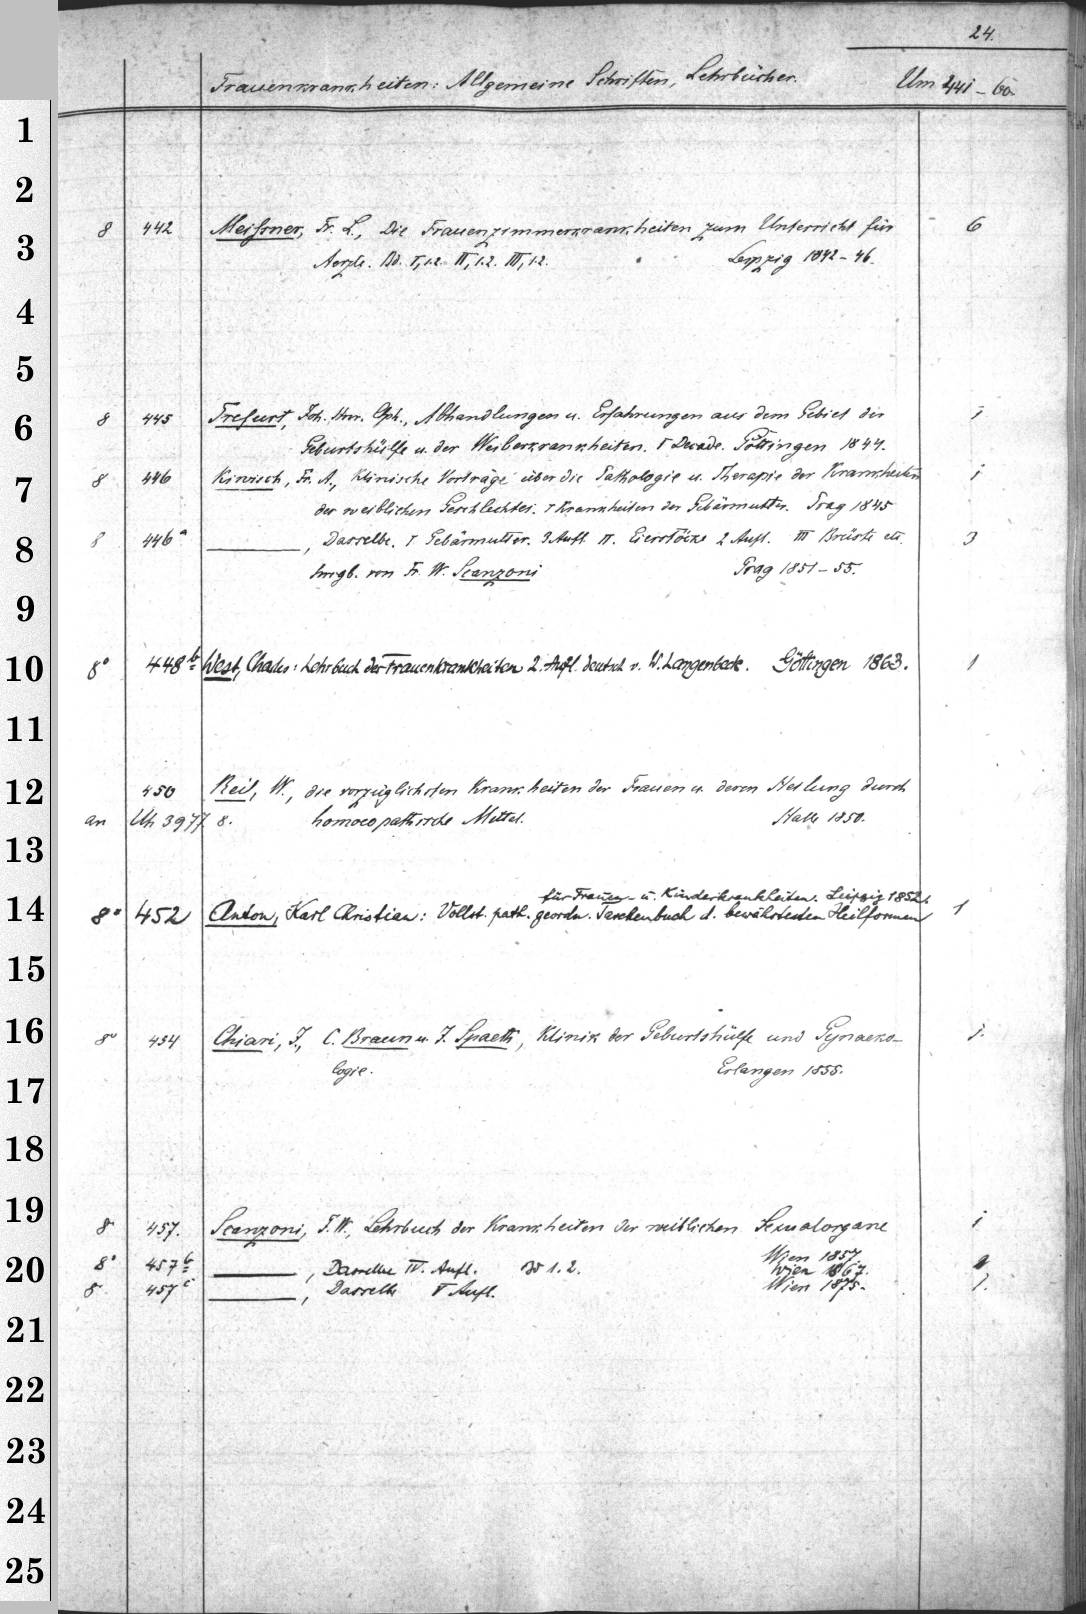 24.
Frauenkrankheiten: Allgemeine Schriften, Lehrbücher. Um 441-60.
1
2
3
4
5
6
7
8
9
10
11
12
13
14
15
16
17
18
19
20
21
22
23
24
25
8 442 Meissner, Fr. L., Die Frauenzimmerkrankheiten zum Unterricht für 6
Aerzte. Bd. I,1.2. II,1.2. III,1.2. Leipzig 1842-46.
8 445 Trefurt, Joh. Chph., Abhandlungen u. Erfahrungen aus dem Gebiet der 1
Geburtshülfe u. der Weiberkrankheiten. I Decade. Göttingen 1844.
8 446 Kiwisch, Fr. A., Klinische Vorträge über die Pathologie u. Therapie der Krankheiten 1
der weiblichen Geschlechtes. I Krankheiten der Gebärmutter. Prag 1845
8 446a ———, Dasselbe. I Gebärmutter. 3 Aufl. II. Eierstöcke 2 Aufl. III Brüste etc. 3
hrsgb. von Fr. W. Scanzoni Prag 1851-55.
8° 448b West, Charles: Lehrbuch der Frauenkrankheiten 2. Aufl. deutsch v. W. Langenbeck. Göttingen 1863. 1
450 Reil, W., die vorzüglichsten Krankheiten der Frauen u. deren Heilung durch
an Uh 3977 8. homoeopathische Mittel. Halle 1850.
für Frauen- u. Kinderkrankheiten. Leipzig 1852.
8° 452 Anton, Karl Christian: Vollst. path. geordn. Taschenbuch d. bewährtesten Heilformen 1
8° 454 Chiari, J., C. Braun u. J. Spaeth, Klinik der Geburtshülfe und Gynaeko- 1.
logie. Erlangen 1855.
8 457. Scanzoni, F. W., Lehrbuch der Krankheiten der weiblichen Sexualorgane 1
Wien 1857.
8° 457b ———, Dasselbe IV. Aufl. Bd 1.2. Wien 1867.
8 457c ———, Dasselbe V Aufl. Wien 1875. 1.